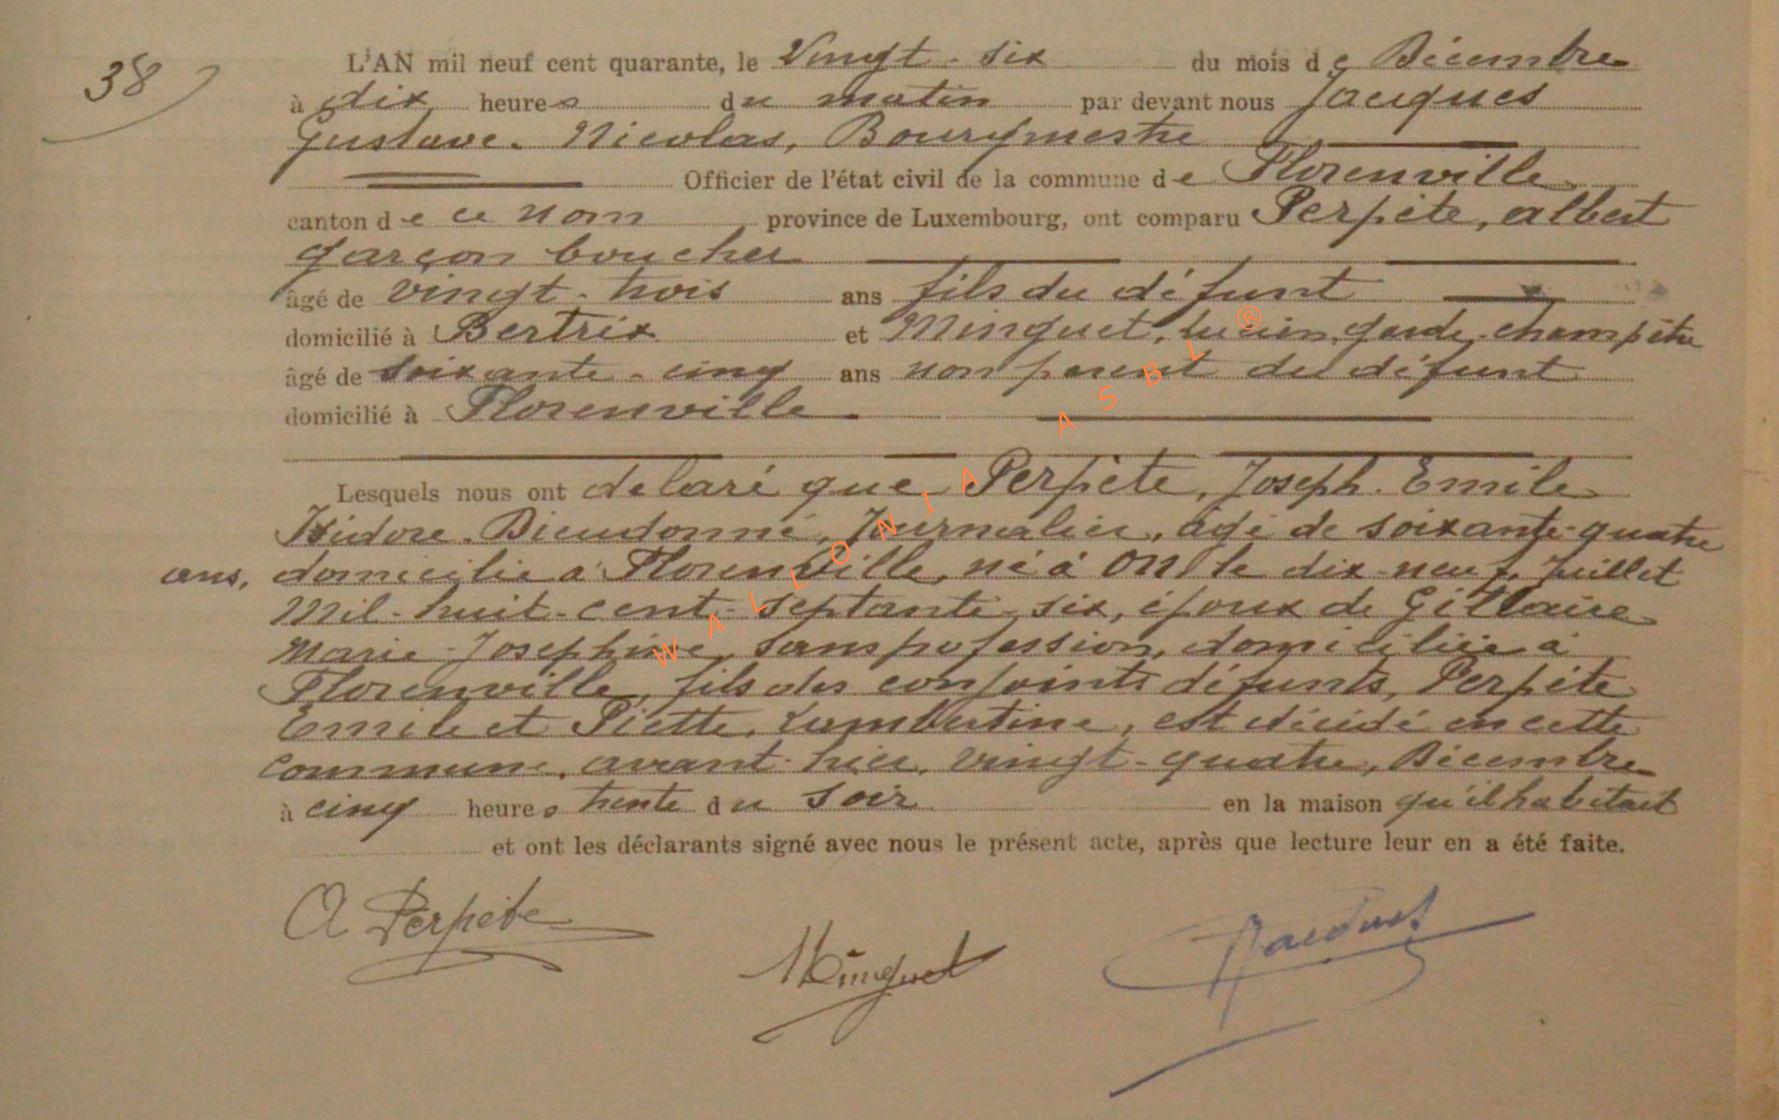 38
L'AN mil neuf cent quarante, le Vingt-six du mois de Décembre
à dix heures du matin par devant nous Jacques
Gustave-Nicolas, Bourgmestre
Officier de l'état civil de la commune de Florenville
canton de ce nom province de Luxembourg, ont comparu Perpète, albert
garçon boucher
âgé de vingt-trois ans fils du défunt
domicilié à Bertrix et Minguet, Lucien, garde-champêtre
âgé de soixante-cinq ans non parent du défunt
domicilié à Florenville
Lesquels nous ont delaré que Perpète, Joseph-Emile
Isidore-Dieudonné, Journalier, âgé de soixante-quatre
ans, domicilié à Florenville, né à On le dix-neuf Juillet
Mil-huit-cent-septante-six, époux de Gillaire
Marie-Joséphine, sans profession, domiciliée à
Florenville, fils des conjoints défunts, Perpète
Emile et Piette, Lambertine, est décédé en cette
commune, avant-hier, vingt-quatre, Décembre
à cinq heures trente du soir en la maison qu'il habitait
et ont les déclarants signé avec nous le présent acte, après que lecture leur en a été faite.
A Perpète
Minguet
Jacques
WALLONIA ASBL ®